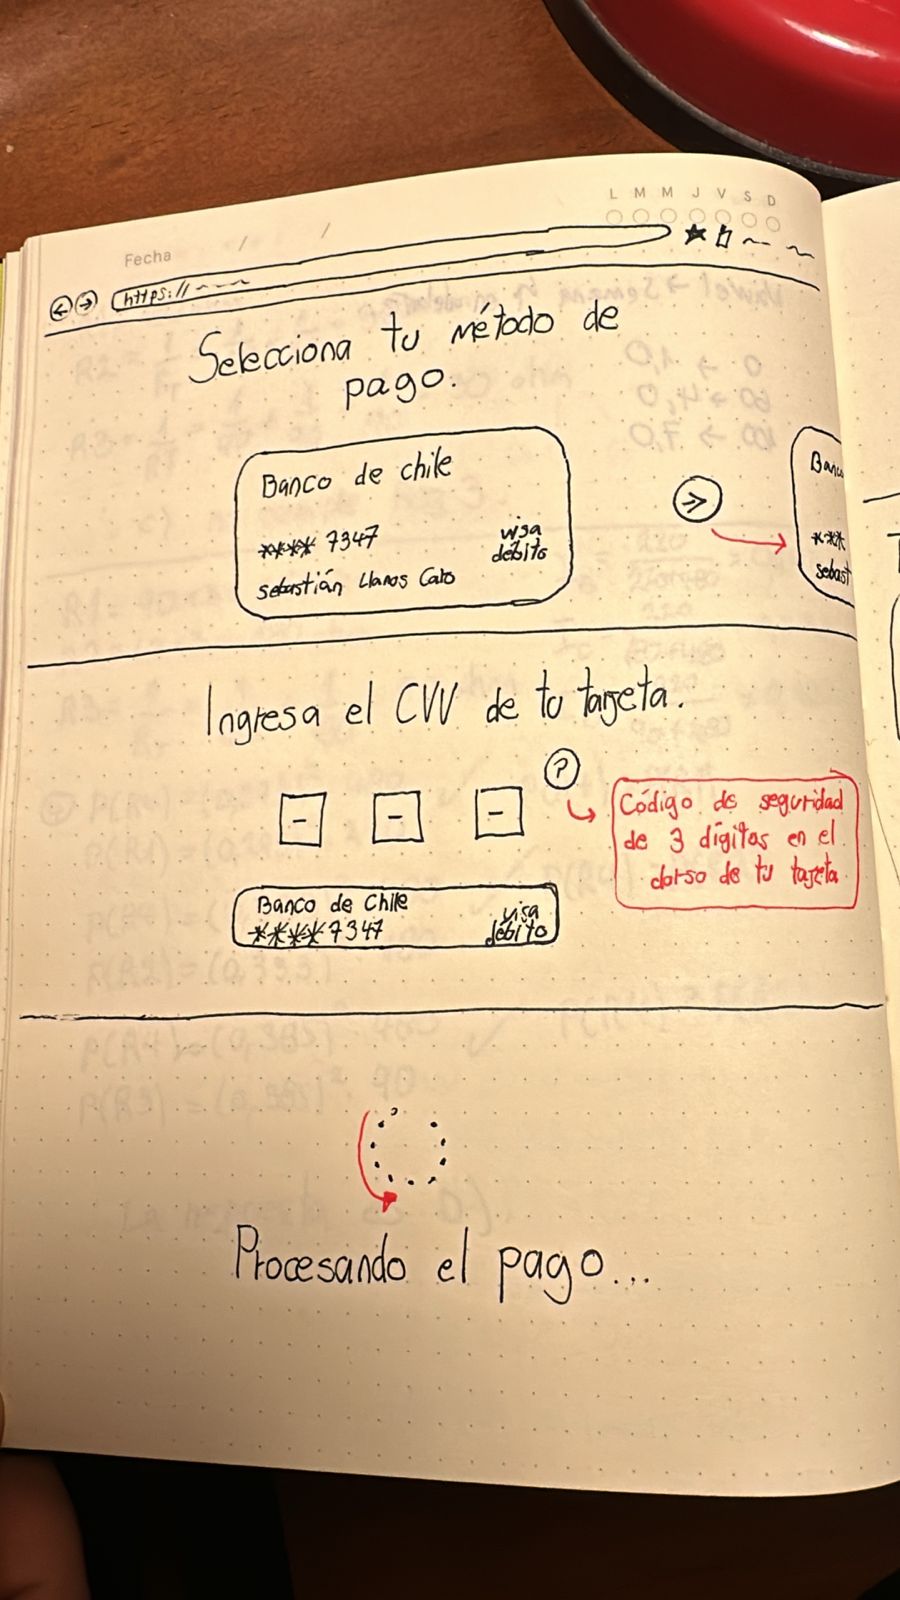 L M M J V S D
Fecha / /
https://
Selecciona tu método de
pago.
Banco de chile
**** 7347
visa
débito
sebastián Llanos Caro
Banc
***
sebast
Ingresa el CVV de tu tarjeta.
?
- - -
Código de seguridad
de 3 dígitos en el
dorso de tu tarjeta
Banco de Chile
**** 7347
visa
débito
Procesando el pago...